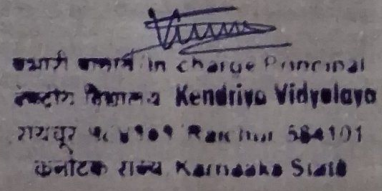 प्रभारी प्राचार्य/In charge Principal
केन्द्रीय विद्यालय Kendriya Vidyalaya
रायचूर ५८४१०१ Raichur 584101
कर्नाटक राज्य Karnataka State